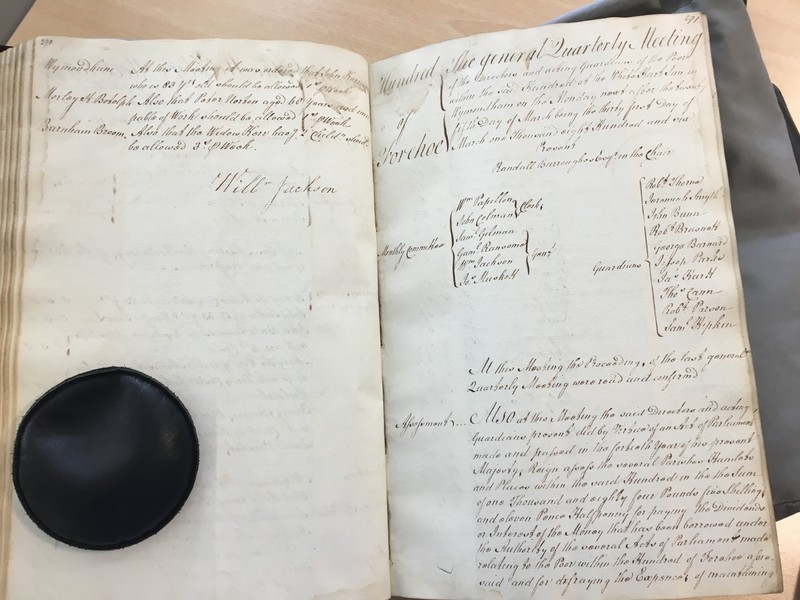 290
Wymondham At this Meeting it was ordered that John
who is 83 y.rs old should be allowed 1s p Week
Morley St Botolph Also that Peter Norton aged 60 years and inca
pable of Work should be allowed 1s p Week.
Barnham Broom. Also that the Widow having 2 Child.n should
be allowed 3s p Week.
Will.m Jackson
291
Hundred
of
Forehoe
The general Quarterly Meeting
of the Directors and acting Guardians of the Poor
within the said Hundred at the White Hart Inn in
Wymondham on the Monday next after the twenty
fifth Day of March being the thirty first Day of
March one Thousand eight Hundred and six
Present
Randall Burroughes Esq.r in the Chair
Monthly Committee
Wm Papillon
John Colman
Clerks
Saml Gilman
Gaml Ransome
Wm Jackson
Jos Muskett
Gent
Guardians
Robt Thorne
Jeremiah Smyth
John Bunn
Robt Brasnett
George Barnard
Jessop Parke
Jas Hartt
Thos Cann
Robt Parson
Saml Hipkin
At this Meeting the Proceedings of the last general
Quarterly Meeting were read and confirmd
Assessment... Also at this Meeting the said Directors and acting
Guardians present did by Virtue of an Act of Parliament
made and passed in the fortieth Year of his present
Majestys Reign assess the several Parishes Hamlets
and Places within the said Hundred in the the Sum
of one Thousand and eighty four Pounds five Shillings
and eleven Pence Halfpenny for paying the Dividends
or Interest of the Money that has been borrowed under
the Authority of the several Acts of Parliament made
relating to the Poor within the Hundred of Forehoe afore
said and for defraying the Expences of maintaining